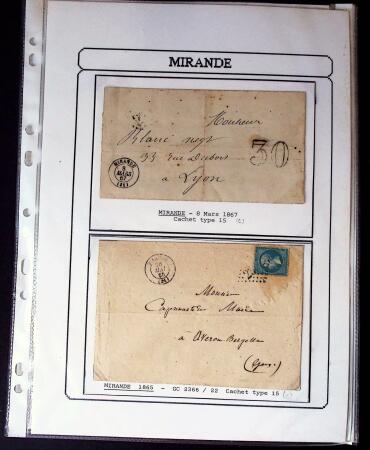 MIRANDE
Monsieur
Blanc negt
33 Rue Dubois
à Lyon
30
MIRANDE
8
MARS
67
(31)
MIRANDE - 8 Mars 1867
Cachet type 15
Monsieur
à Averon Bergelle
(Gers)
MIRANDE 1865 - GC 2366 / 22 Cachet type 15